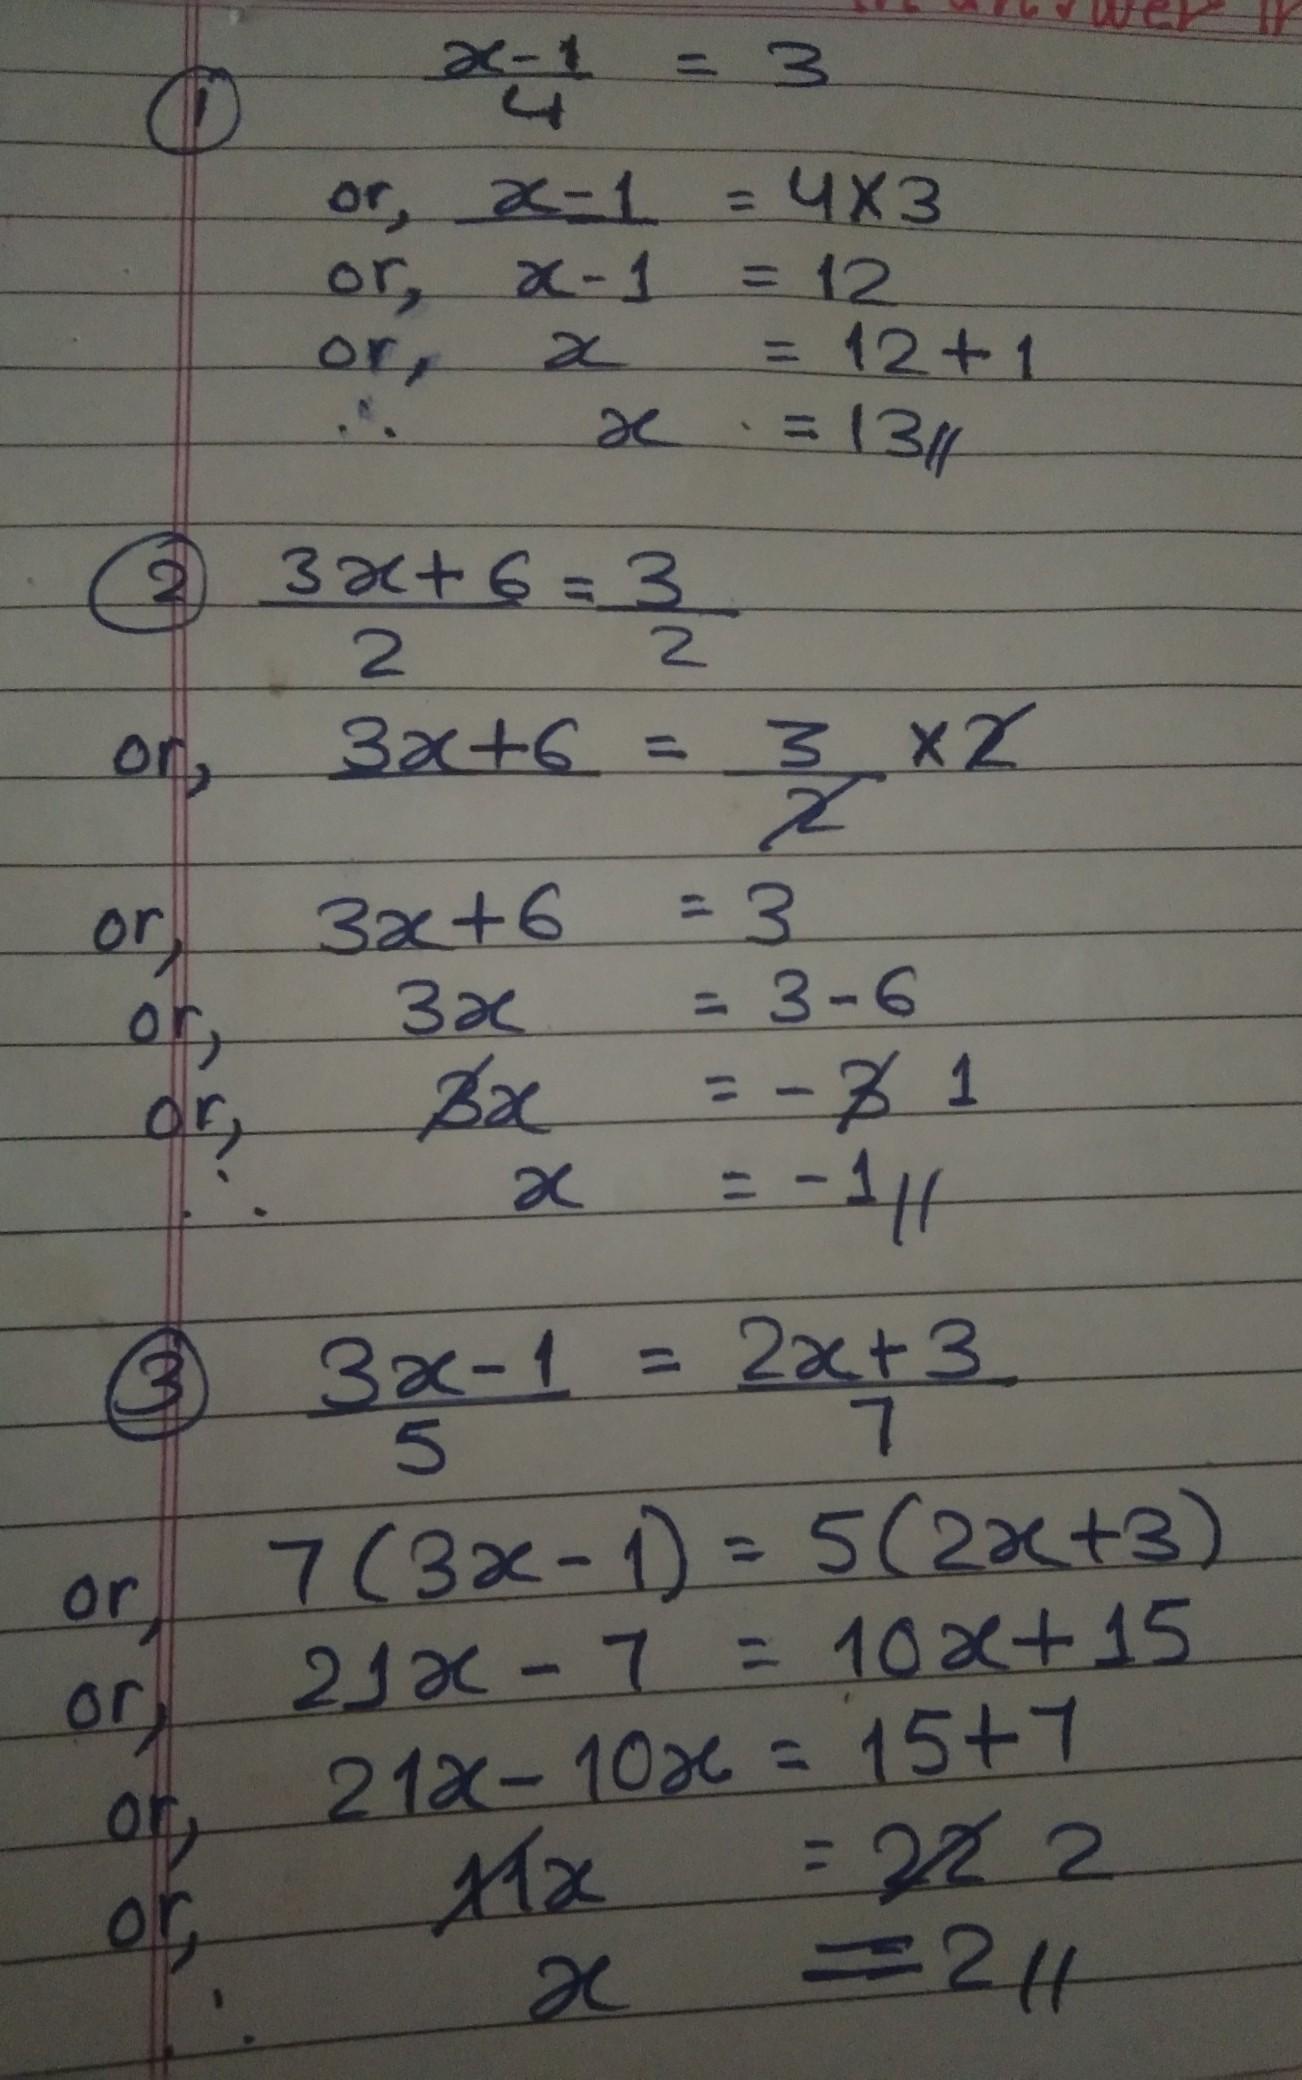 in answer
① x-1/4 = 3
or, x-1 = 4×3
or, x-1 = 12
or, x = 12+1
∴ x = 13//
② 3x+6/2 = 3/2
or, 3x+6 = 3/2 ×2
or, 3x+6 = 3
or, 3x = 3-6
or, 3x = -3 1
∴ x = -1//
③ 3x-1/5 = 2x+3/7
or, 7(3x-1) = 5(2x+3)
or, 21x-7 = 10x+15
or, 21x-10x = 15+7
or, 11x = 22 2
∴ x = 2//